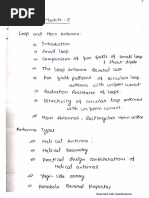 Module - 5
Loop and Horn Antenna:-
Introduction
Small loop
Comparison of far fields of small loop
& short dipole
The loop antenna General case
Far field patterns of circular loop
antenna with uniform current
Radiation Resistance of loops
Directivity of circular loop antenna
with uniform current
Horn Antennas : Rectangular Horn antennas
Antenna Types
Helical Antenna
Helical Geometry
Practical design Considerations of
Helical antennas
Yagi - Uda array
Parabola General Properties
Scanned with CamScanner